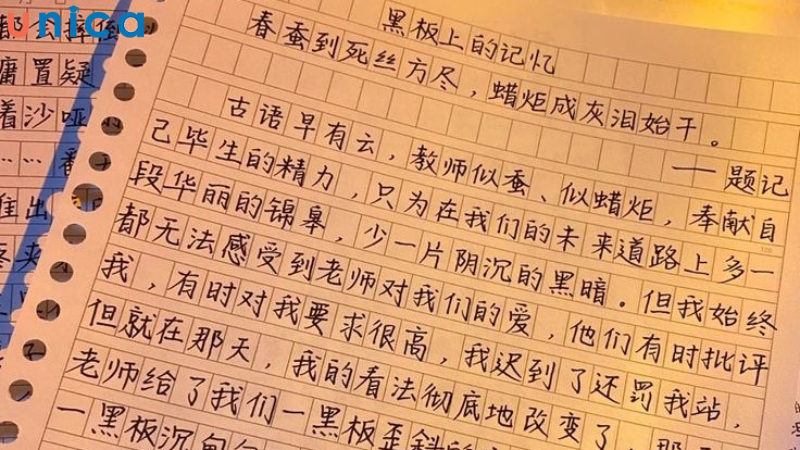 unica
黑板上的记忆
春蚕到死丝方尽，蜡炬成灰泪始干。
——题记
古语早有云，教师似蚕、似蜡炬，奉献自
己毕生的精力，只为在我们的未来道路上多一
段华丽的锦皋，少一片阴沉的黑暗。但我始终
都无法感受到老师对我们的爱，他们有时批评
我，有时对我要求很高，我迟到了还罚我站，
但就在那天，我的看法彻底地改变了，那
老师给了我们一黑板歪斜
一黑板沉甸
摔倒
庸置疑
着沙哑
……
出
来